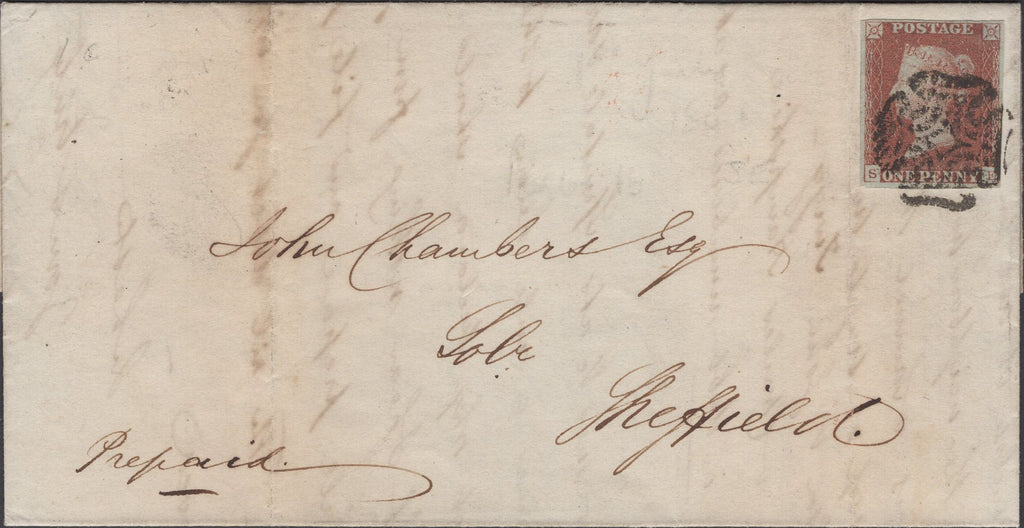 POSTAGE
S ONE PENNY
John Chambers Esq
Solr
Sheffield.
Prepaid.